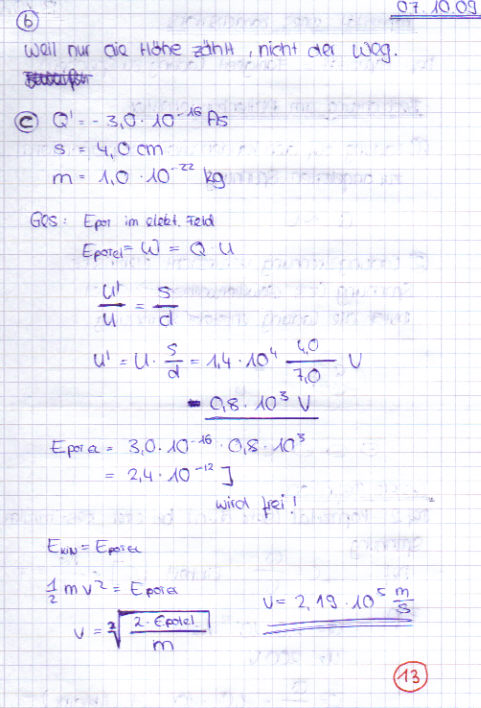 07.10.09
b
Weil nur die Höhe zählt, nicht der Weg.
c Q' = - 3,0 · 10⁻¹⁶ As
s = 4,0 cm
m = 1,0 · 10⁻²² kg
GES: Epot im elekt. Feld
Epotel = W = Q · U
U'/U = s/d
U' = U · s/d = 1,4 · 10⁴ 4,0/7,0 V
= 0,8 · 10³ V
Epotel = 3,0 · 10⁻¹⁶ · 0,8 · 10³
= 2,4 · 10⁻¹² J
wird frei!
EKIN = Epotel
1/2 m v² = Epotel
v = ²√(2 · Epotel / m) v = 2,19 · 10⁵ m/s
13